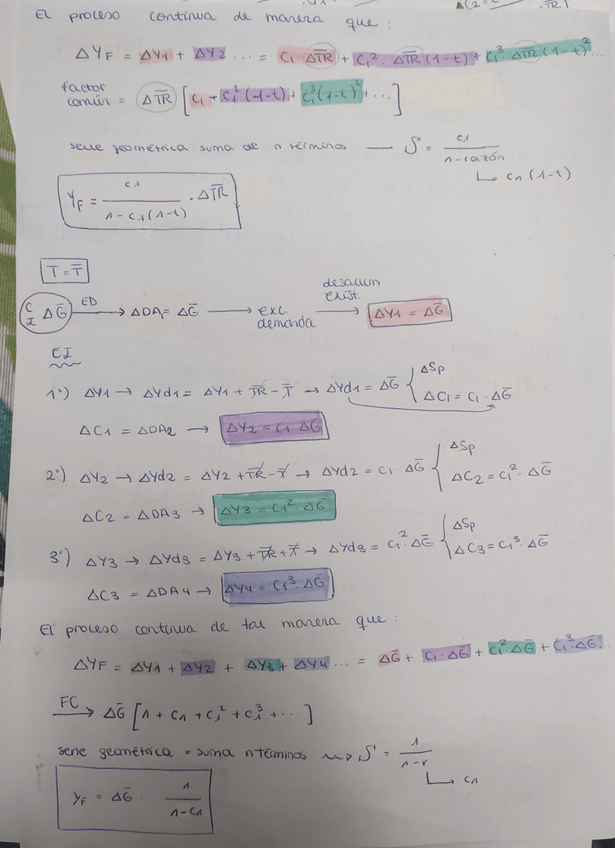 El proceso continua de manera que :
ΔY_F = ΔY1 + ΔY2 ... = C₁ · ΔT̄R̄ + C₁² · ΔT̄R̄ (1-t) + C₁³ ΔT̄R̄ (1-t)² ...
factor común = ΔT̄R̄ [C₁ + C₁² (1-t) + C₁³ (1-t)² + ...]
serie geométrica suma de n términos — S' = C1 / 1-razón
↳ C1 (1-t)
Y_F = C1 / 1-C1(1-t) · ΔT̄R̄
T = T̄
C I ΔḠ —ED→ ΔDA₁ = ΔḠ → exc demanda —desacum exist.→ ΔY1 = ΔḠ
EI
1º) ΔY1 → ΔYd1 = ΔY1 + T̄R̄ - T̄ → ΔYd1 = ΔḠ { ΔSp
ΔC₁ = C₁ · ΔḠ
ΔC1 = ΔDA2 → ΔY2 = C₁ · ΔḠ
2º) ΔY2 → ΔYd2 = ΔY2 + T̄R̄ - T̄ → ΔYd2 = C₁ · ΔḠ { ΔSp
ΔC2 = C₁² · ΔḠ
ΔC2 = ΔDA3 → ΔY3 = C₁² · ΔḠ
3º) ΔY3 → ΔYd3 = ΔY3 + T̄R̄ + T̄ → ΔYd3 = C₁² ΔḠ { ΔSp
ΔC3 = C₁³ · ΔḠ
ΔC3 = ΔDA4 → ΔY4 = C₁³ · ΔḠ
El proceso continua de tal manera que :
ΔY_F = ΔY1 + ΔY2 + ΔY3 + ΔY4 ... = ΔḠ + C₁ · ΔḠ + C₁² · ΔḠ + C₁³ · ΔḠ ...
FC → ΔḠ [1 + C1 + C₁² + C₁³ + ...]
serie geométrica = suma n términos ⇝ S' = 1 / 1-r
↳ C1
Y_F = ΔḠ · 1 / 1-C1